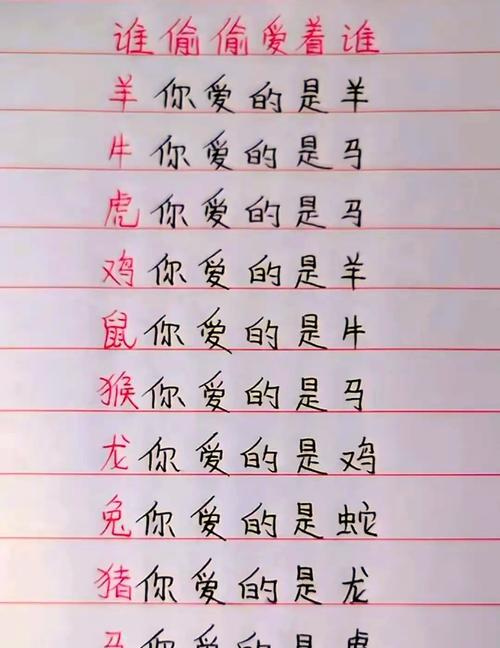 谁偷偷爱着谁
羊你爱的是羊
牛你爱的是马
虎你爱的是马
鸡你爱的是羊
鼠你爱的是牛
猴你爱的是马
龙你爱的是鸡
兔你爱的是蛇
猪你爱的是龙
马你爱的是虎